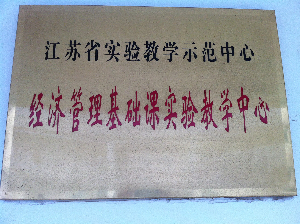 江苏省实验教学示范中心
经济管理基础课实验教学中心